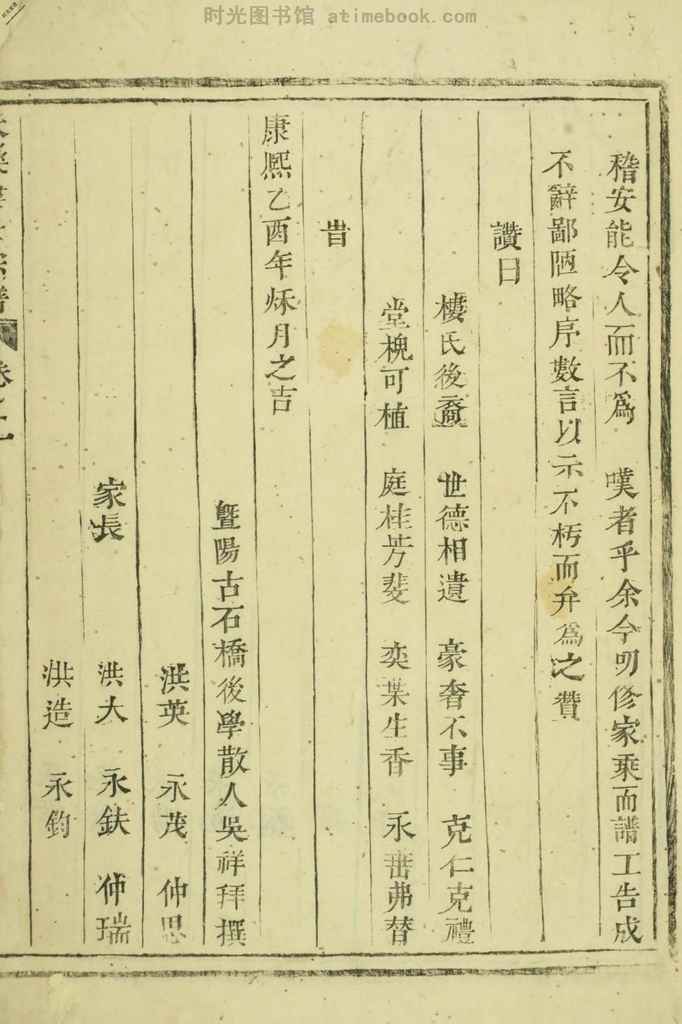 时光图书馆 atimebook.com
稽安能令人而不爲 嘆者乎余今叨修家乗而譜工告成
不辭鄙陋略序數言以示不朽而弁爲之贊
讃曰
樓氏後裔 世德相遺 豪奢不事 克仁克禮
堂槐可植 庭桂芳斐 奕葉生香 永垂弗替
旹
康熈乙酉年冧月之吉
暨陽古石橋後學散人吳祥拜撰
洪英 永茂 仲思
家長 洪大 永鈇 仲瑞
洪造 永鈞
宗譜 卷之一